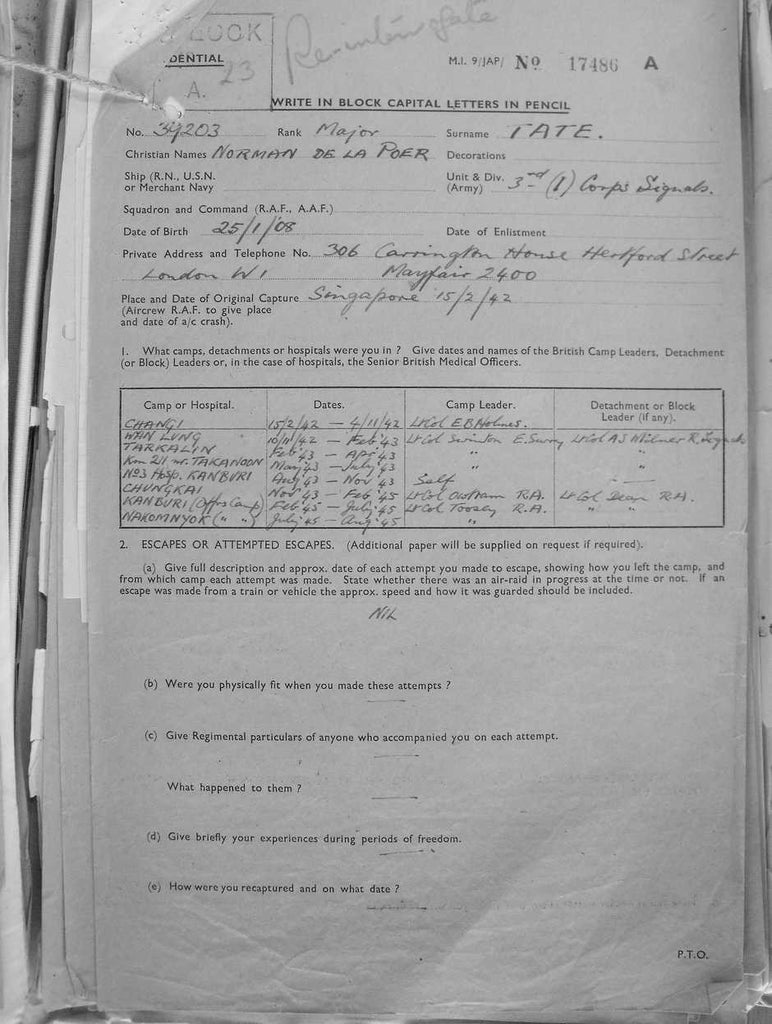 LOOK
Re-interrogate
DENTIAL
A. 23
M.I. 9/JAP/ No 17486 A
WRITE IN BLOCK CAPITAL LETTERS IN PENCIL
No. 39203 Rank Major Surname TATE.
Christian Names NORMAN DE LA POER Decorations
Ship (R.N., U.S.N. or Merchant Navy
Unit & Div. (Army) 3rd (1) Corps Signals.
Squadron and Command (R.A.F., A.A.F.)
Date of Birth 25/1/08 Date of Enlistment
Private Address and Telephone No. 306 Carrington House Hertford Street
London W1 Mayfair 2400
Place and Date of Original Capture Singapore 15/2/42
(Aircrew R.A.F. to give place
and date of a/c crash).
1. What camps, detachments or hospitals were you in ? Give dates and names of the British Camp Leaders, Detachment
(or Block) Leaders or, in the case of hospitals, the Senior British Medical Officers.
Camp or Hospital. Dates. Camp Leader. Detachment or Block Leader (if any).
CHANGI 15/2/42 — 4/11/42 Lt Col E B Holmes.
WAN LUNG 10/11/42 — Feb '43 Lt Col Swinton E. Surry Lt Col A S Milner R. Signals
TARKALIN Feb '43 — Apr '43 " "
Km 211 nr. TAKANOON May '43 — July '43 " "
No3 Hosp. KANBURI Aug '43 — Nov '43 Self —
CHUNGKAI Nov '43 — Feb '45 Lt Col Outram R.A. Lt Col Dean R.A.
KANBURI (Offrs Camp) Feb '45 — July '45 Lt Col Toosey R.A. " "
NAKOMNYOK ( " " ) July '45 — Aug '45 "
2. ESCAPES OR ATTEMPTED ESCAPES. (Additional paper will be supplied on request if required).
(a) Give full description and approx. date of each attempt you made to escape, showing how you left the camp, and
from which camp each attempt was made. State whether there was an air-raid in progress at the time or not. If an
escape was made from a train or vehicle the approx. speed and how it was guarded should be included.
NIL
(b) Were you physically fit when you made these attempts ?
(c) Give Regimental particulars of anyone who accompanied you on each attempt.
What happened to them ?
(d) Give briefly your experiences during periods of freedom.
(e) How were you recaptured and on what date ?
P.T.O.